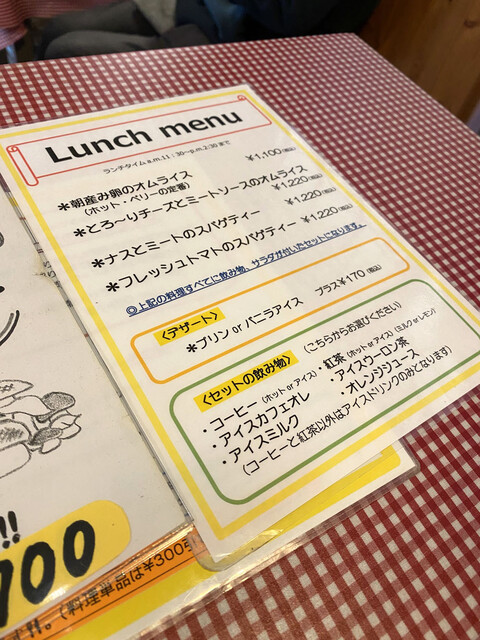 Lunch menu
ランチタイム a.m.11:30~p.m.2:30 まで
＊朝産み卵のオムライス ¥1,100(税込)
(ホット・ベリーの定番)
＊とろ～りチーズとミートソースのオムライス ¥1,220(税込)
＊ナスとミートのスパゲティー ¥1,220(税込)
＊フレッシュトマトのスパゲティー ¥1,220(税込)
◎上記の料理すべてに飲み物、サラダが付いたセットになります。
〈デザート〉
＊プリン or バニラアイス プラス¥170(税込)
〈セットの飲み物〉 (こちらからお選びください)
・コーヒー(ホット or アイス) ・紅茶(ホット or アイス)(ミルク or レモン)
・アイスカフェオレ ・アイスウーロン茶
・アイスミルク ・オレンジジュース
(コーヒーと紅茶以外はアイスドリンクのみとなります)
!!
700
(料理単品は¥300